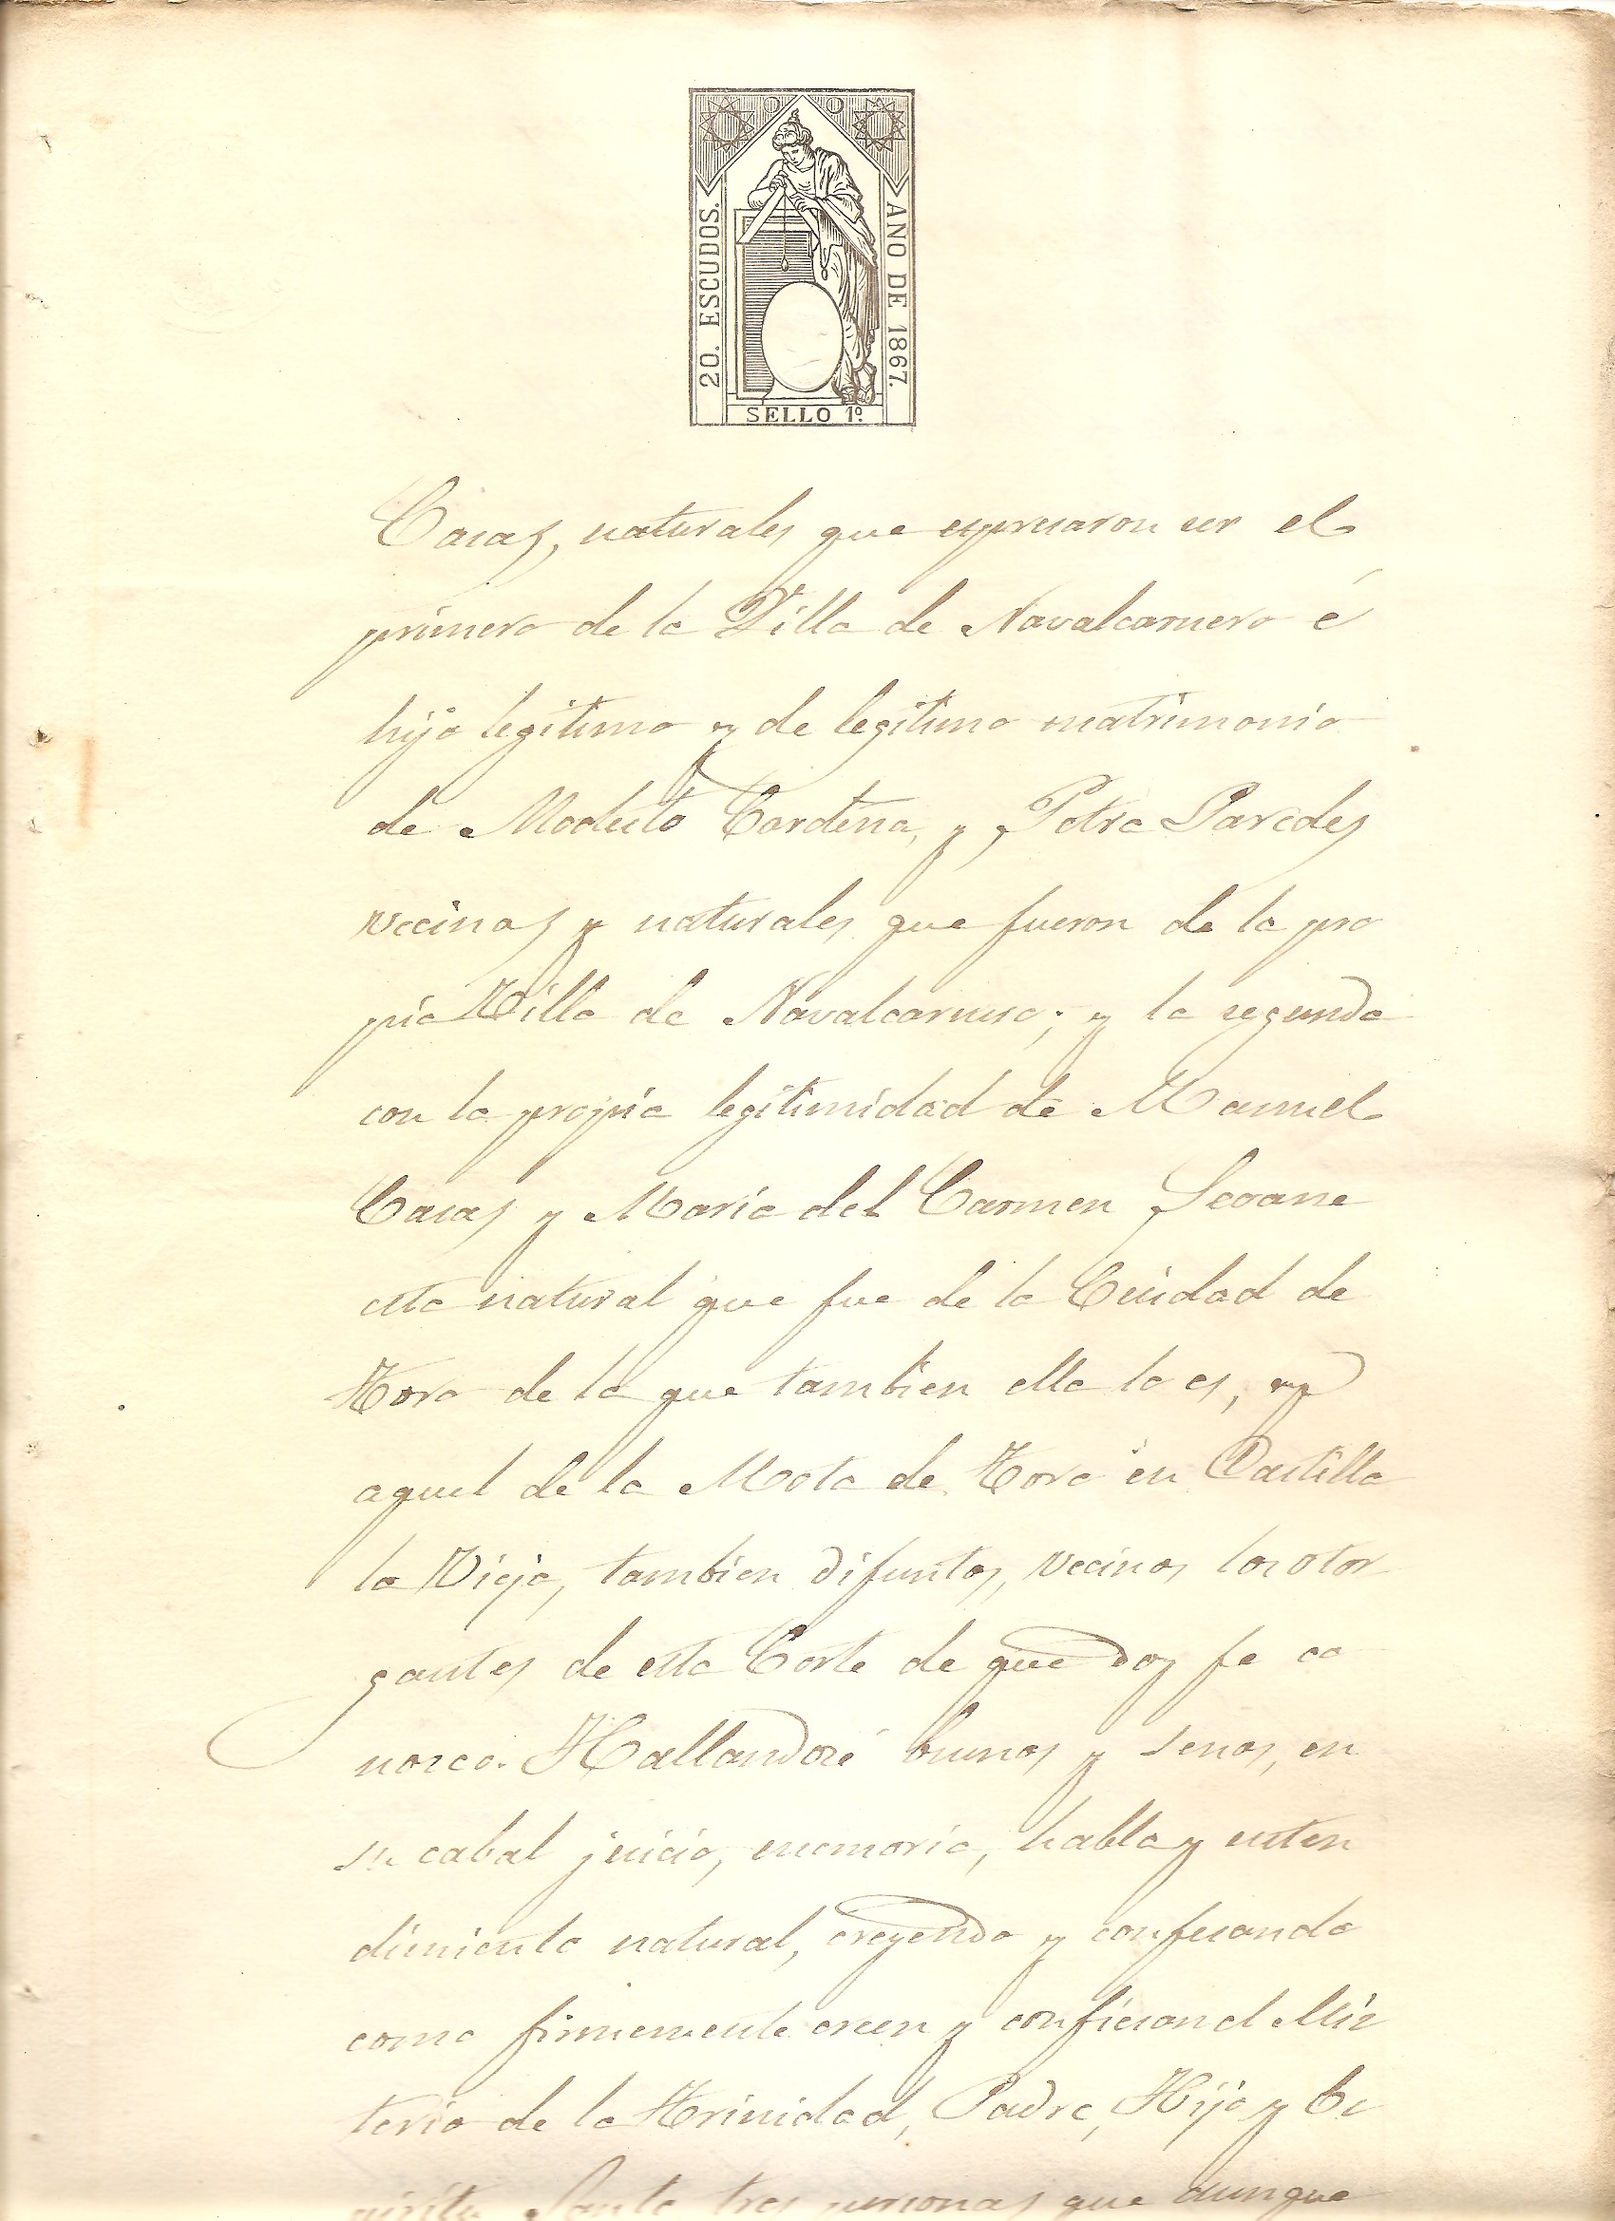 20. ESCUDOS.
AÑO DE 1867.
SELLO 1º.
Casas, naturales que espresaron ser el
primero de la Villa de Navalcarnero é
hijo legitimo y de legitimo matrimonio
de Modesto Cardeña, y Petra Paredes
vecinos y naturales que fueron de la pro
pia Villa de Navalcarnero; y la segunda
con la propia legitimidad de Manuel
Casas y Maria del Carmen Seoane
esta natural que fue de la Ciudad de
Toro de la que tambien ella lo es, y
aquel de la Mota de Toro en Castilla
la Vieja, tambien difuntos, vecinos los otor
gantes de esta Corte de que doy fe co
nozco. Hallandosé buenos y senos, en
su cabal juicio, memoria, habla y enten
dimiento natural, creyendo y confesando
como firmemente creen y confiesan el Mis
terio de la Trinidad, Padre, Hijo y Es
piritu Santo tres personas que aunque